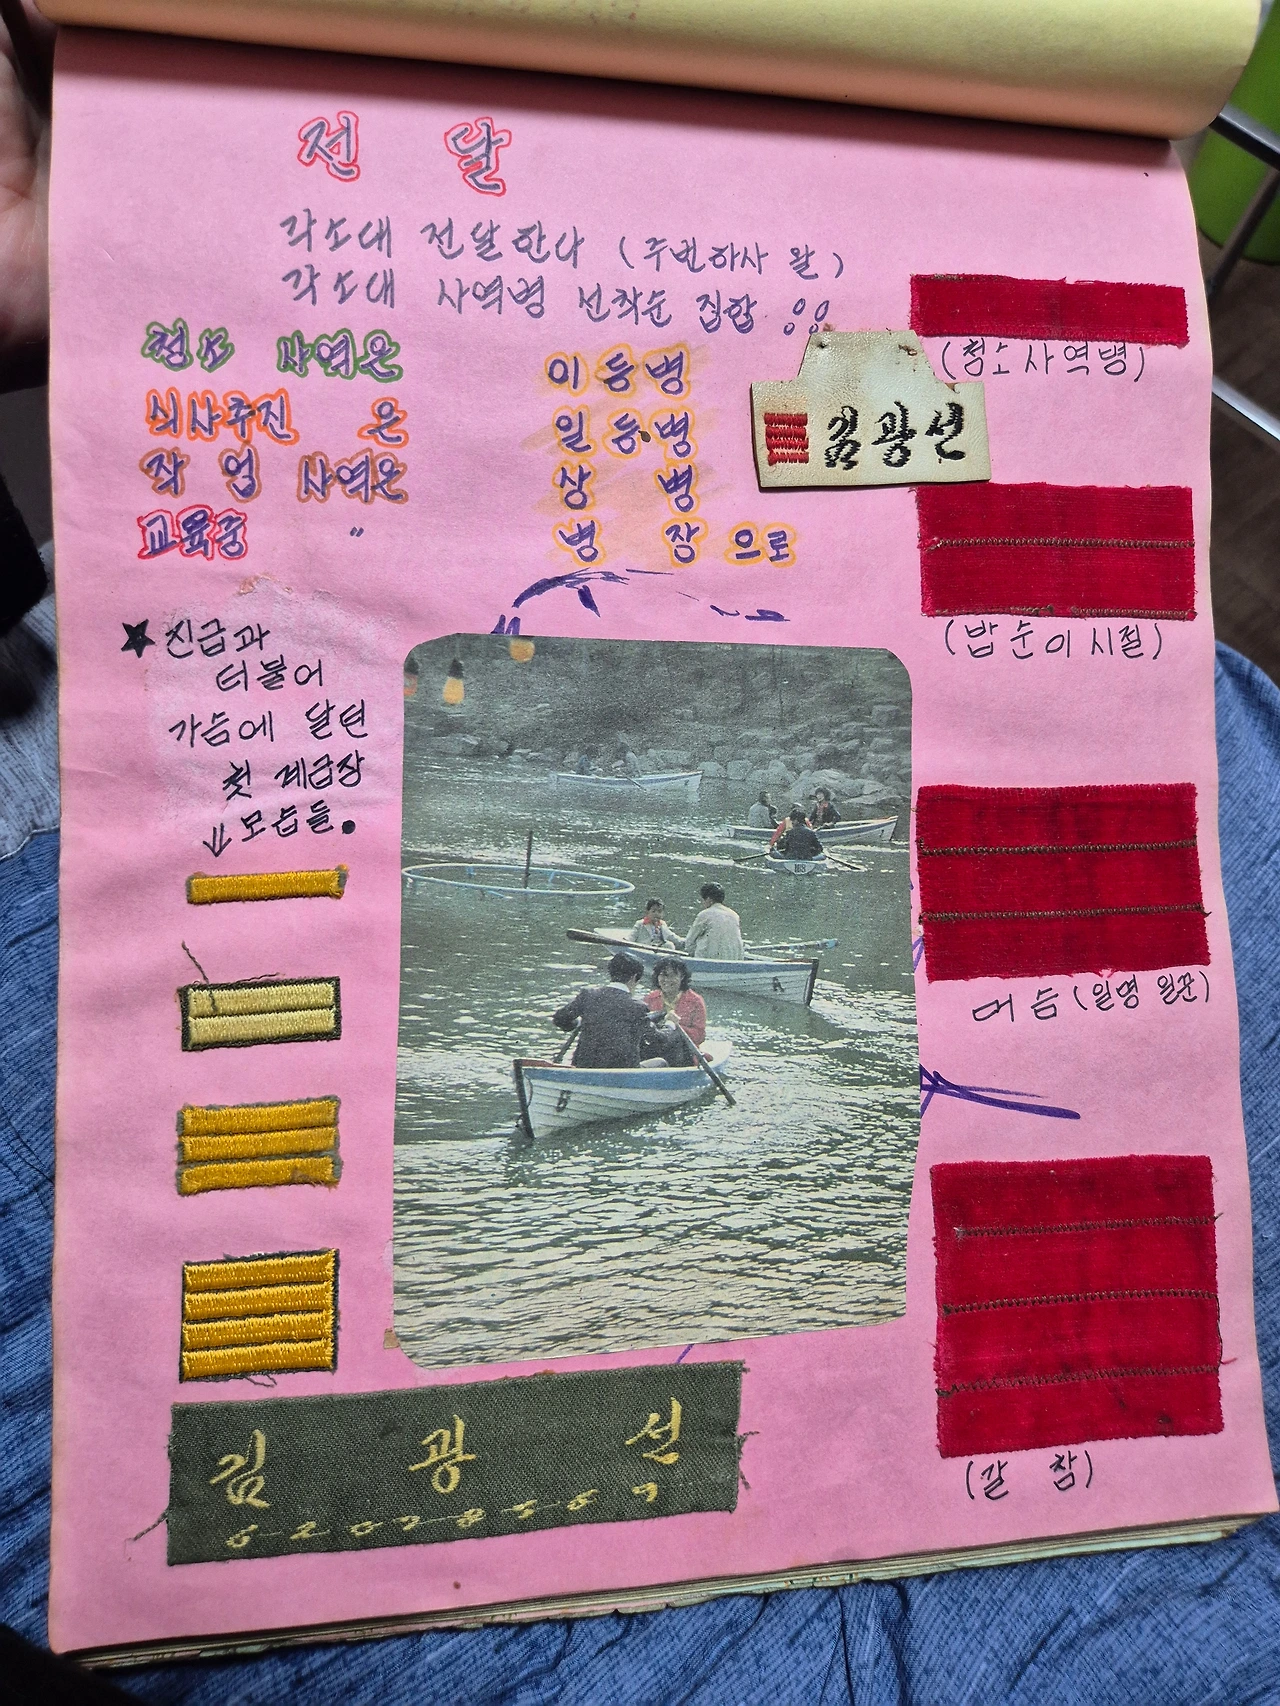 전 달
각소대 전달한다 (주번하사 왈)
각소대 사역병 선착순 집합 %%
청소 사역은 이등병
식사추진 은 일등병
작업 사역은 상 병
교육중 〃 병 장 으로
(청소사역병)
김광선
(밥순이시절)
★ 진급과
더불어
가슴에 달던
첫 계급장
↓모습들.
머슴 (일명 일꾼)
(갈 참)
김 광 선
62078567